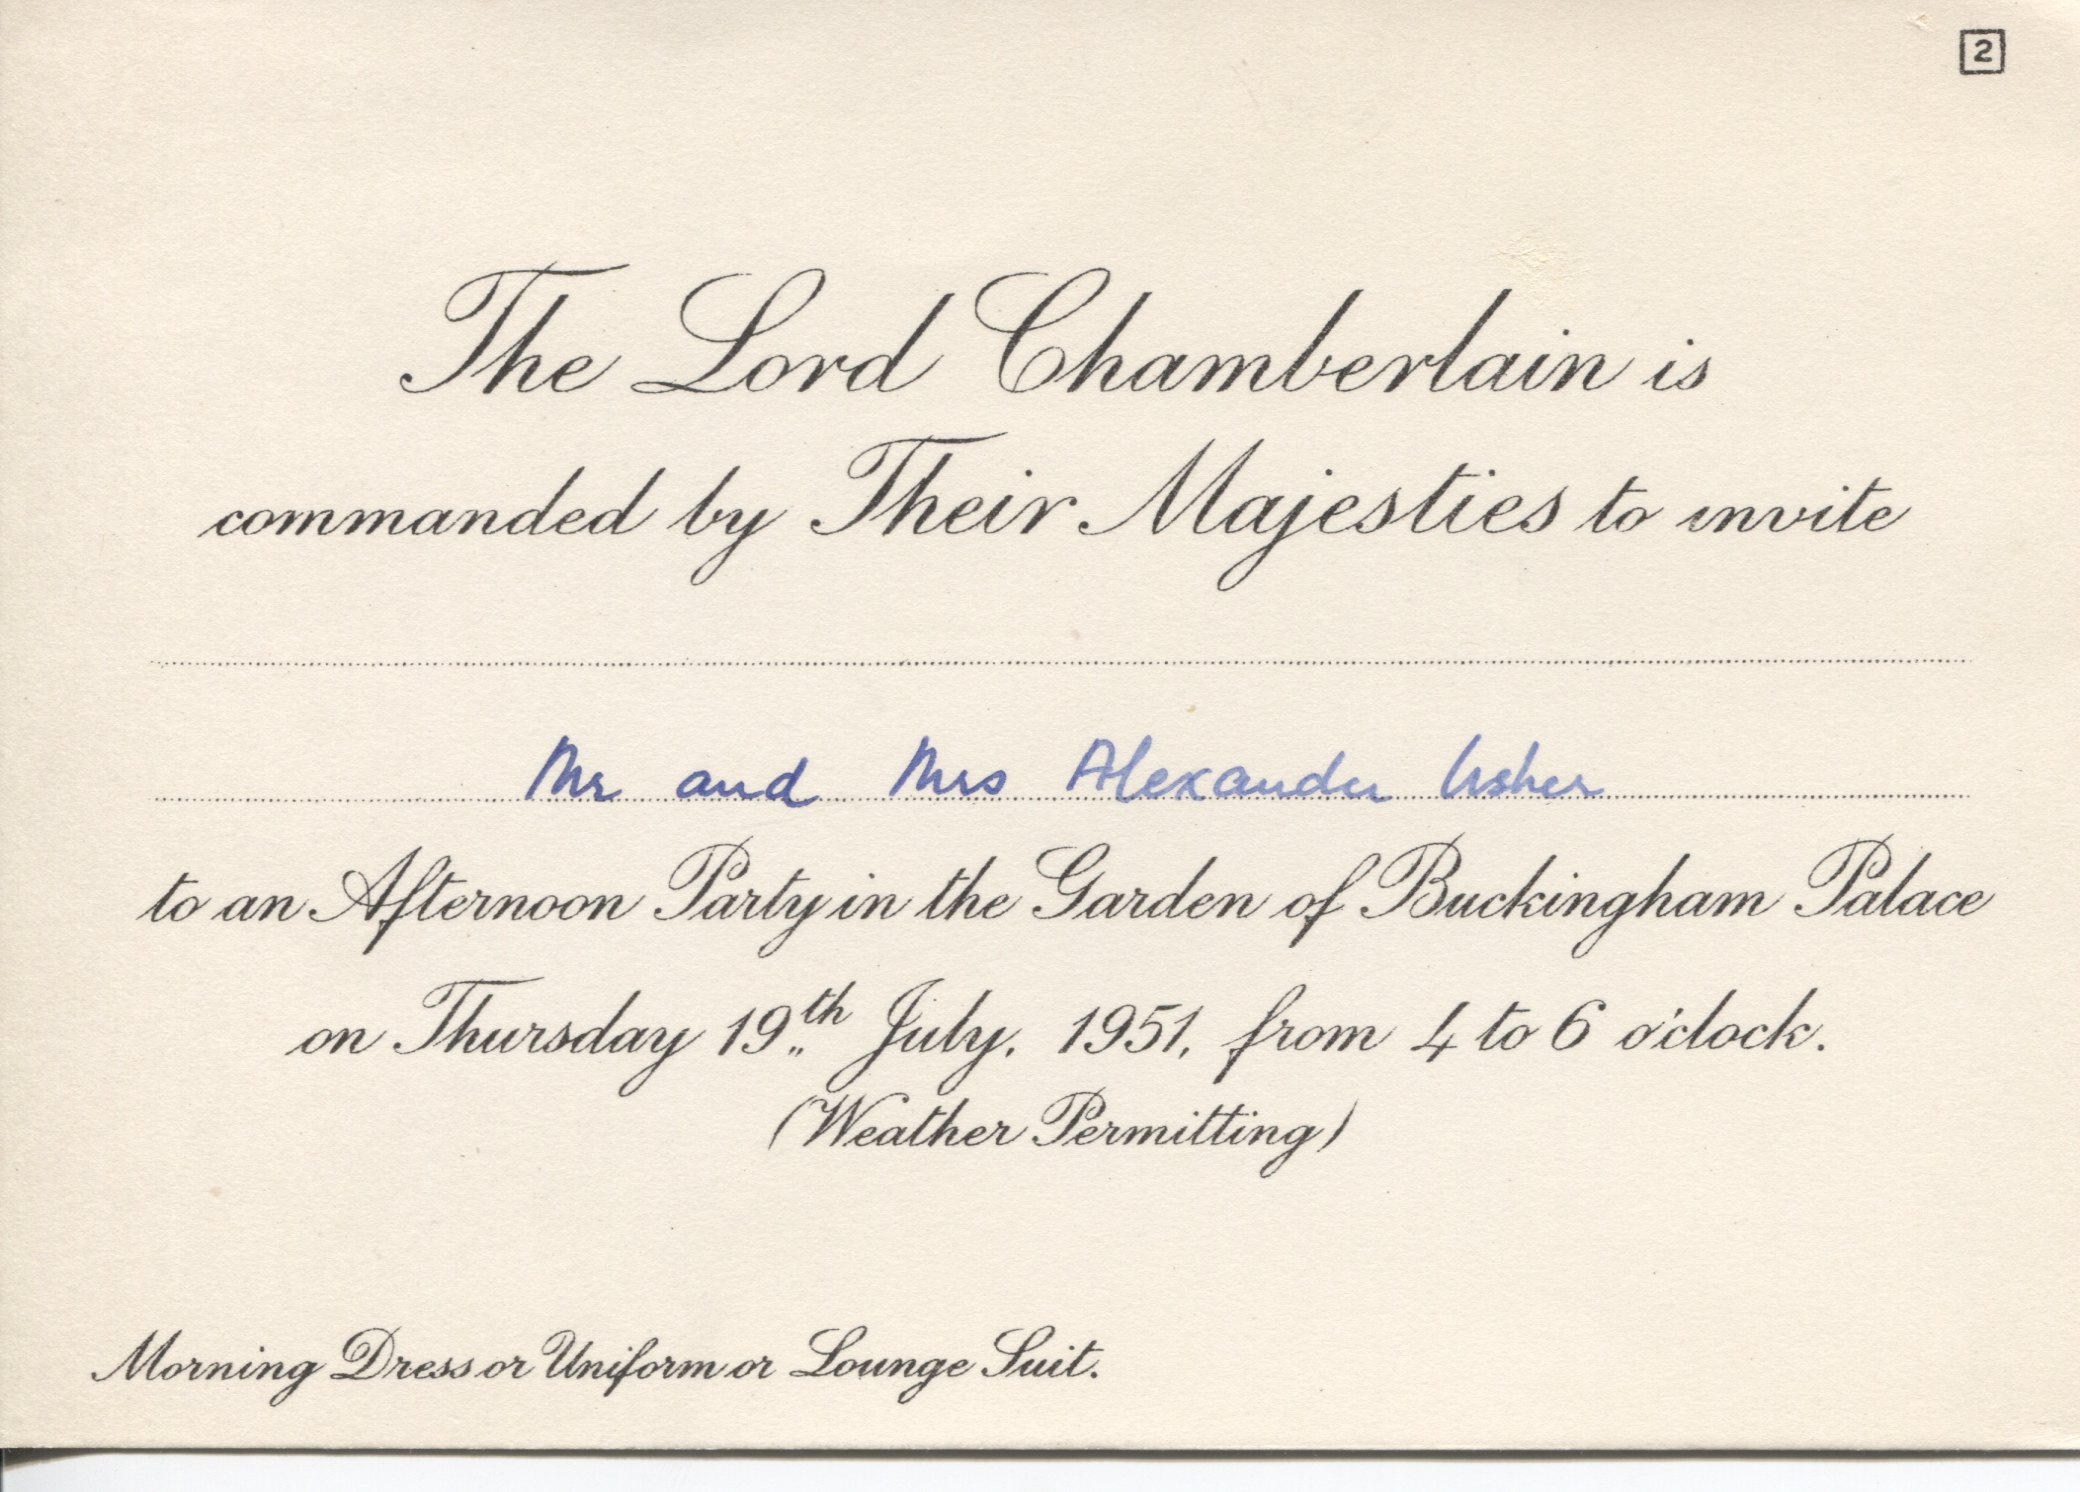 2
The Lord Chamberlain is
commanded by Their Majesties to invite
Mr and Mrs Alexander Usher
to an Afternoon Party in the Garden of Buckingham Palace
on Thursday 19th July, 1951, from 4 to 6 o'clock.
(Weather Permitting)
Morning Dress or Uniform or Lounge Suit.